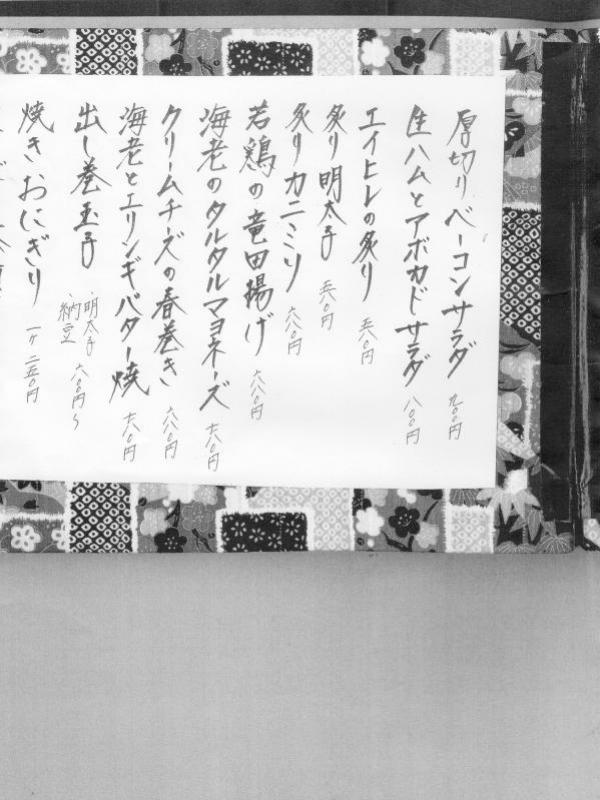 厚切りベーコンサラダ 九〇〇円
生ハムとアボカドサラダ 八〇〇円
エイヒレの炙り 五八〇円
炙り明太子 五八〇円
炙りカニミソ 六八〇円
若鶏の竜田揚げ 六八〇円
海老のタルタルマヨネーズ 七八〇円
クリームチーズの春巻き 六八〇円
海老とエリンギバター焼 七八〇円
出し巻玉子 ・明太子 ・納豆 六八〇円〜
焼きおにぎり 一ヶ 二五〇円